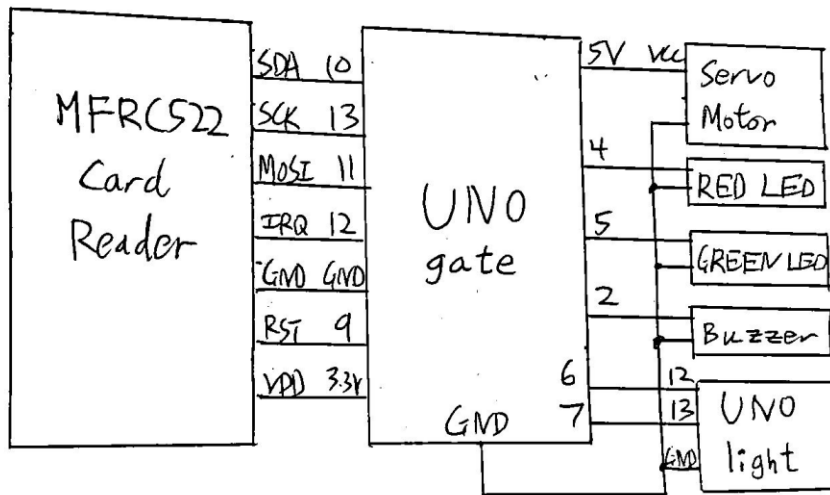 MFRC522
Card
Reader
SDA 10
SCK 13
MOSI 11
IRQ 12
GND GND
RST 9
VDD 3.3V
UNO
gate
GND
5V VCC
4
5
2
6 12
7 13
GND
Servo
Motor
RED LED
GREEN LED
Buzzer
UNO
light